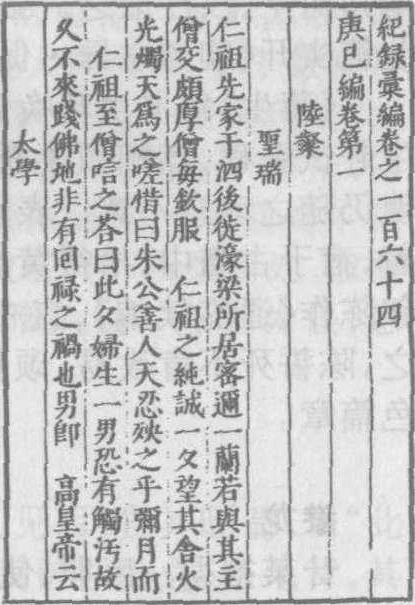 紀録彙編卷之一百六十四
庚巳編卷第一
陸粲
聖瑞
仁祖先家于泗後徙濠梁所居密邇一蘭若與其主
僧交頗厚僧每欽服　仁祖之純誠一夕望其舍火
光燭天爲之嗟惜曰朱公善人天忍殃之乎彌月而
仁祖至僧唁之荅曰此夕婦生一男恐有觸汚故
久不來踐佛地非有回祿之禍也男卽　高皇帝云
太學